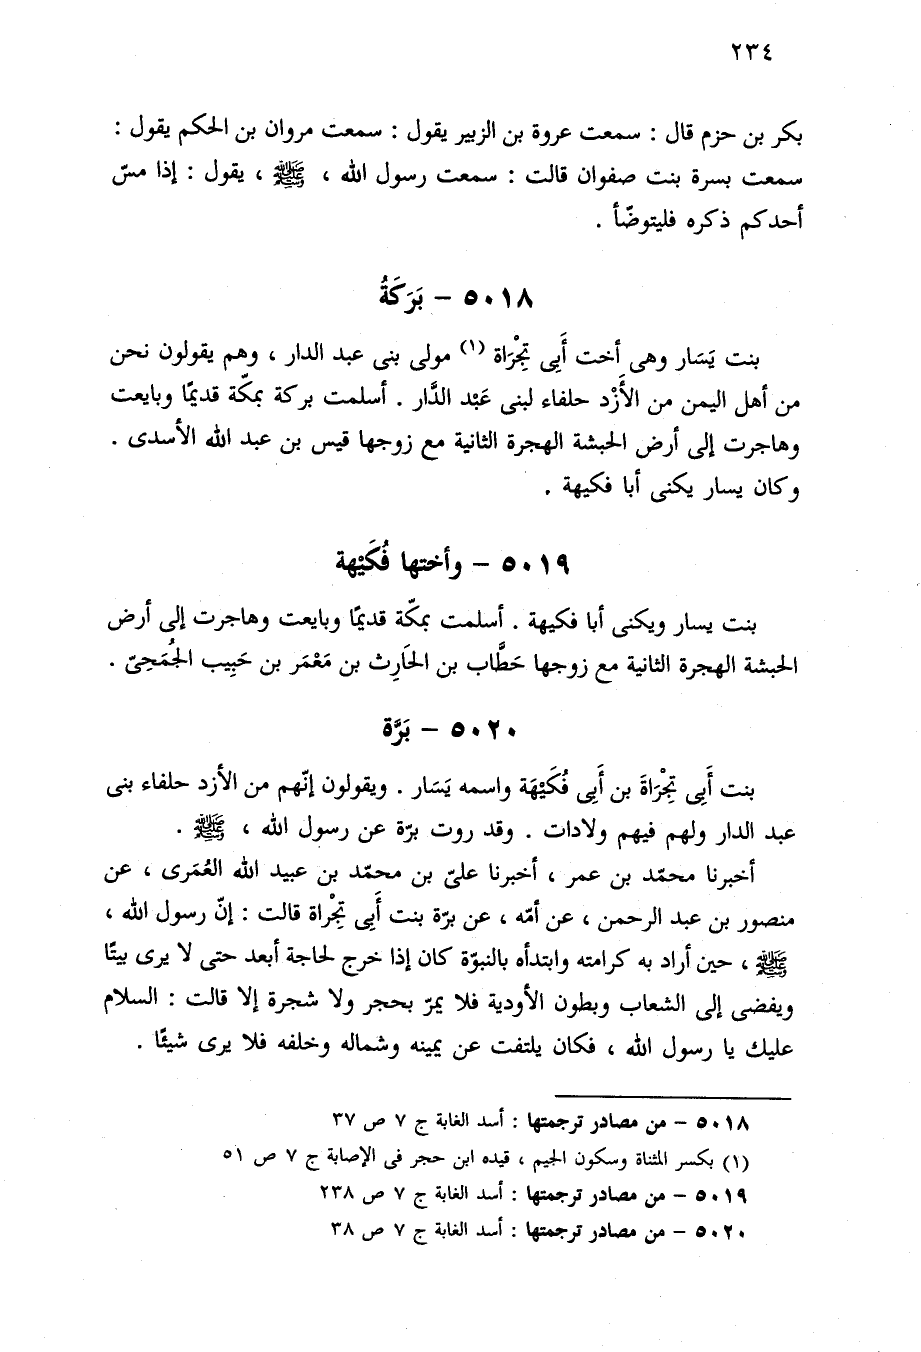 ٢٣٤
بكر بن حزم قال : سمعت عروة بن الزبير يقول : سمعت مروان بن الحكم يقول :
سمعت بسرة بنت صفوان قالت : سمعت رسول الله ، ﷺ ، يقول : إذا مسّ
أحدكم ذكره فليتوضّأ .
٥٠١٨ – بَرَكَةُ
بنت يَسَار وهى أخت أَبِى تِجْرَاة (١) مولى بنى عبد الدار ، وهم يقولون نحن
من أهل اليمن من الأَزْد حلفاء لبنى عَبْد الدَّار . أسلمت بركة بمكّة قديمًا وبايعت
وهاجرت إلى أرض الحبشة الهجرة الثانية مع زوجها قيس بن عبد الله الأسدى .
وكان يسار يكنى أبا فكيهة .
٥٠١٩ – وأختها فُكَيْهة
بنت يسار ويكنى أبا فكيهة . أسلمت بمكّة قديمًا وبايعت وهاجرت إلى أرض
الحبشة الهجرة الثانية مع زوجها حَطَّاب بن الحَارِث بن مَعْمَر بن حَبِيب الجُمَحِىّ .
٥٠٢٠ – بَرَّة
بنت أَبِى تِجْرَاةَ بن أَبِى فُكَيْهَة واسمه يَسَار . ويقولون إنّهم من الأزد حلفاء بنى
عبد الدار ولهم فيهم ولادات . وقد روت برّة عن رسول الله ، ﷺ .
أخبرنا محمّد بن عمر ، أخبرنا علىّ بن محمّد بن عبيد الله العُمَرى ، عن
منصور بن عبد الرحمن ، عن أمّه ، عن برّة بنت أَبِى تِجْراة قالت : إنّ رسول الله ،
ﷺ ، حين أراد به كرامته وابتدأه بالنبوّة كان إذا خرج لحاجة أبعد حتى لا يرى بيتًا
ويفضى إلى الشعاب وبطون الأودية فلا يمرّ بحجر ولا شجرة إلا قالت : السلام
عليك يا رسول الله ، فكان يلتفت عن يمينه وشماله وخلفه فلا يرى شيئًا .
٥٠١٨ – من مصادر ترجمتها : أسد الغابة ج ٧ ص ٣٧
(١) بكسر المثناة وسكون الجيم ، قيده ابن حجر فى الإصابة ج ٧ ص ٥١
٥٠١٩ – من مصادر ترجمتها : أسد الغابة ج ٧ ص ٢٣٨
٥٠٢٠ – من مصادر ترجمتها : أسد الغابة ج ٧ ص ٣٨